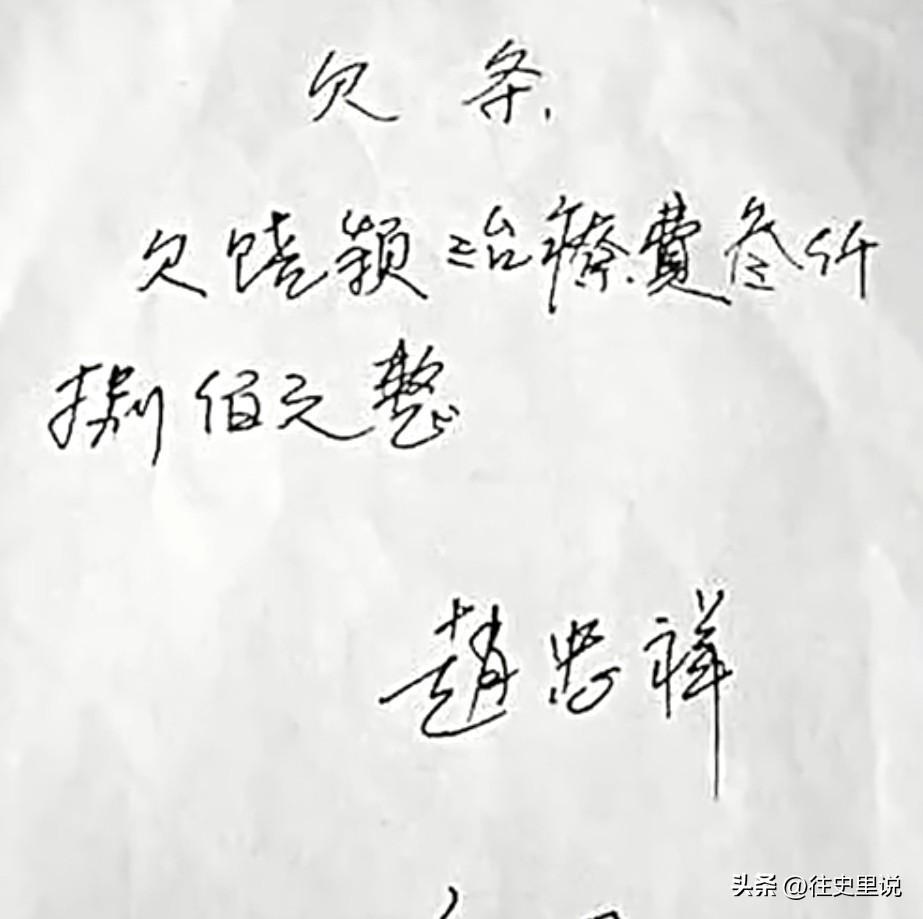 欠条
欠饶颖治療費叁仟
捌佰元整
趙忠祥
头条 @往史里说